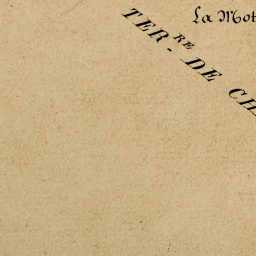 La Mot
TER.RE DE CH